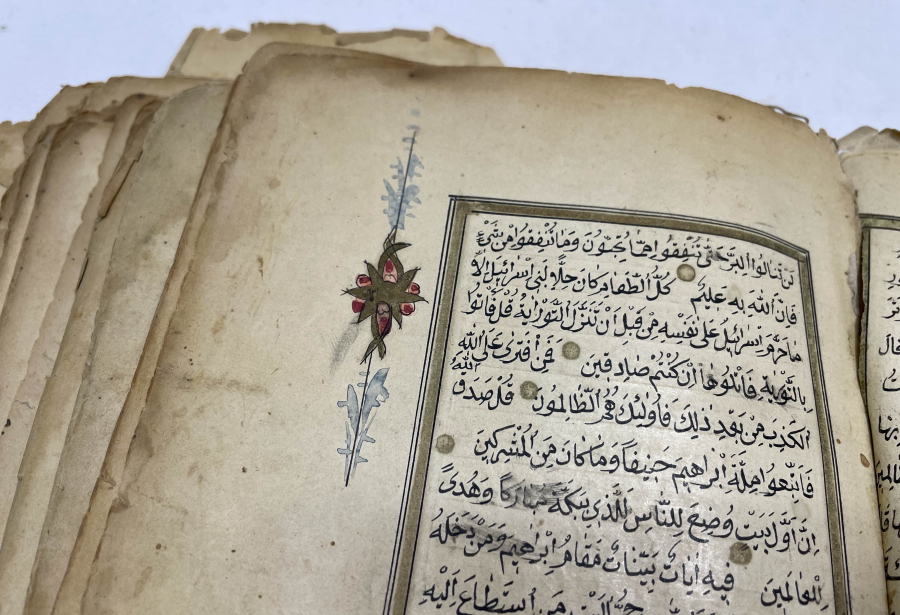 لَنْ تَنَالُوا الْبِرَّ حَتَّى تُنْفِقُوا مِمَّا تُحِبُّونَ وَمَا تُنْفِقُوا مِنْ شَيْءٍ
فَاِنَّ اللهَ بِهِ عَلِيمٌ كُلُّ الطَّعَامِ كَانَ حِلًّا لِبَنِي اِسْرَائِيلَ اِلَّا
مَا حَرَّمَ اِسْرَائِيلُ عَلَى نَفْسِهِ مِنْ قَبْلِ اَنْ تُنَزَّلَ التَّوْرَايةُ قُلْ فَاْتُوا
بِالتَّوْرَيةِ فَاتْلُوهَا اِنْ كُنْتُمْ صَادِقِينَ فَمَنِ افْتَرَى عَلَى اللهِ
الْكَذِبَ مِنْ بَعْدِ ذَلِكَ فَاُولَئِكَ هُمُ الظَّالِمُونَ قُلْ صَدَقَ اللهُ
فَاتَّبِعُوا مِلَّةَ اِبْرَاهِيمَ حَنِيفًا وَمَا كَانَ مِنَ الْمُشْرِكِينَ
اِنَّ اَوَّلَ بَيْتٍ وُضِعَ لِلنَّاسِ لَلَّذِي بِبَكَّةَ مُبَارَكًا وَهُدًى
لِلْعَالَمِينَ فِيهِ اٰيَاتٌ بَيِّنَاتٌ مَقَامُ اِبْرَاهِيمَ وَمَنْ دَخَلَهُ
حِجُّ الْبَيْتِ مَنِ اسْتَطَاعَ اِلَيْهِ